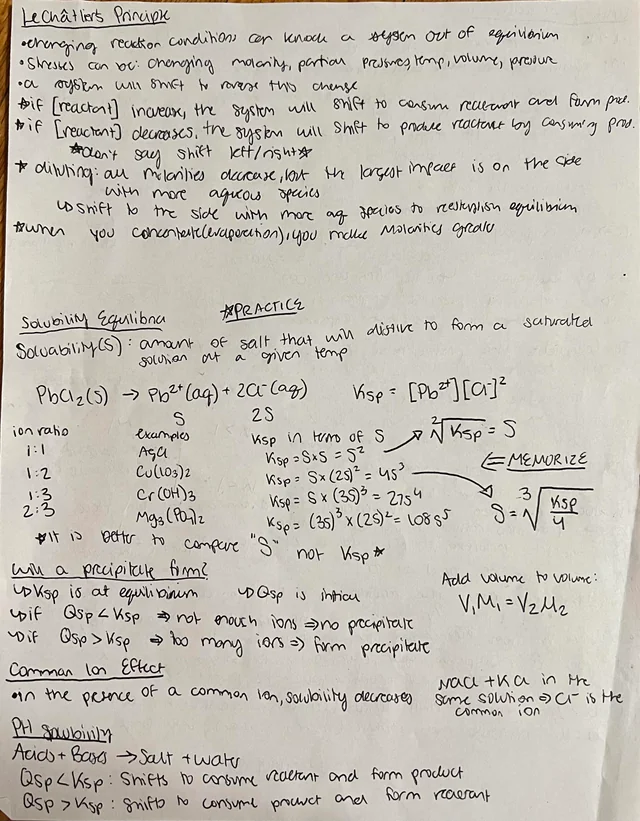 LeChâtlier's Principle
•changing reaction conditions can knock a system out of equilibrium
•stresses can be: changing molarity, partial pressures, temp, volume, pressure
•a system will shift to reverse this change
*if [reactant] increase, the system will shift to consume reactant and form prod.
*if [reactant] decreases, the system will shift to produce reactant by consuming prod.
*don't say shift left/right*
*diluting: all molarities decrease, but the largest impact is on the side
with more aqueous species
↳shift to the side with more aq species to reestablish equilibrium
*when you concentrate(evaporation), you make Molarities greater
Solubility Equilibria *PRACTICE
Solubility(S): amount of salt that will disolve to form a saturated
solution at a given temp
PbCl₂(s) → Pb²⁺(aq) + 2Cl⁻(aq) Ksp = [Pb²⁺][Cl⁻]²
S 2S
ion ratio examples Ksp in term of S
1:1 AgCl Ksp = S×S = S² → ²√Ksp = S
1:2 Cu(IO₃)₂ Ksp = S × (2S)² = 4S³ ⇐ MEMORIZE
1:3 Cr(OH)₃ Ksp = S × (3S)³ = 27S⁴ S = ³√Ksp/4
2:3 Mg₃(PO₄)₂ Ksp = (3S)³ × (2S)² = 108S⁵
*it is better to compare "S" not Ksp*
Will a precipitate form?
↳Ksp is at equilibrium ↳Qsp is initial
↳if Qsp < Ksp ⇒ not enough ions ⇒ no precipitate
↳if Qsp > Ksp ⇒ too many ions ⇒ form precipitate
Add volume to volume:
V₁M₁ = V₂M₂
Common Ion Effect
•in the presence of a common ion, solubility decreases
NaCl + KCl in the
same solution ⇒ Cl⁻ is the
common ion
PH solubility
Acids + Bases → Salt + water
Qsp < Ksp: Shifts to consume reactant and form product
Qsp > Ksp: shifts to consume product and form reactant